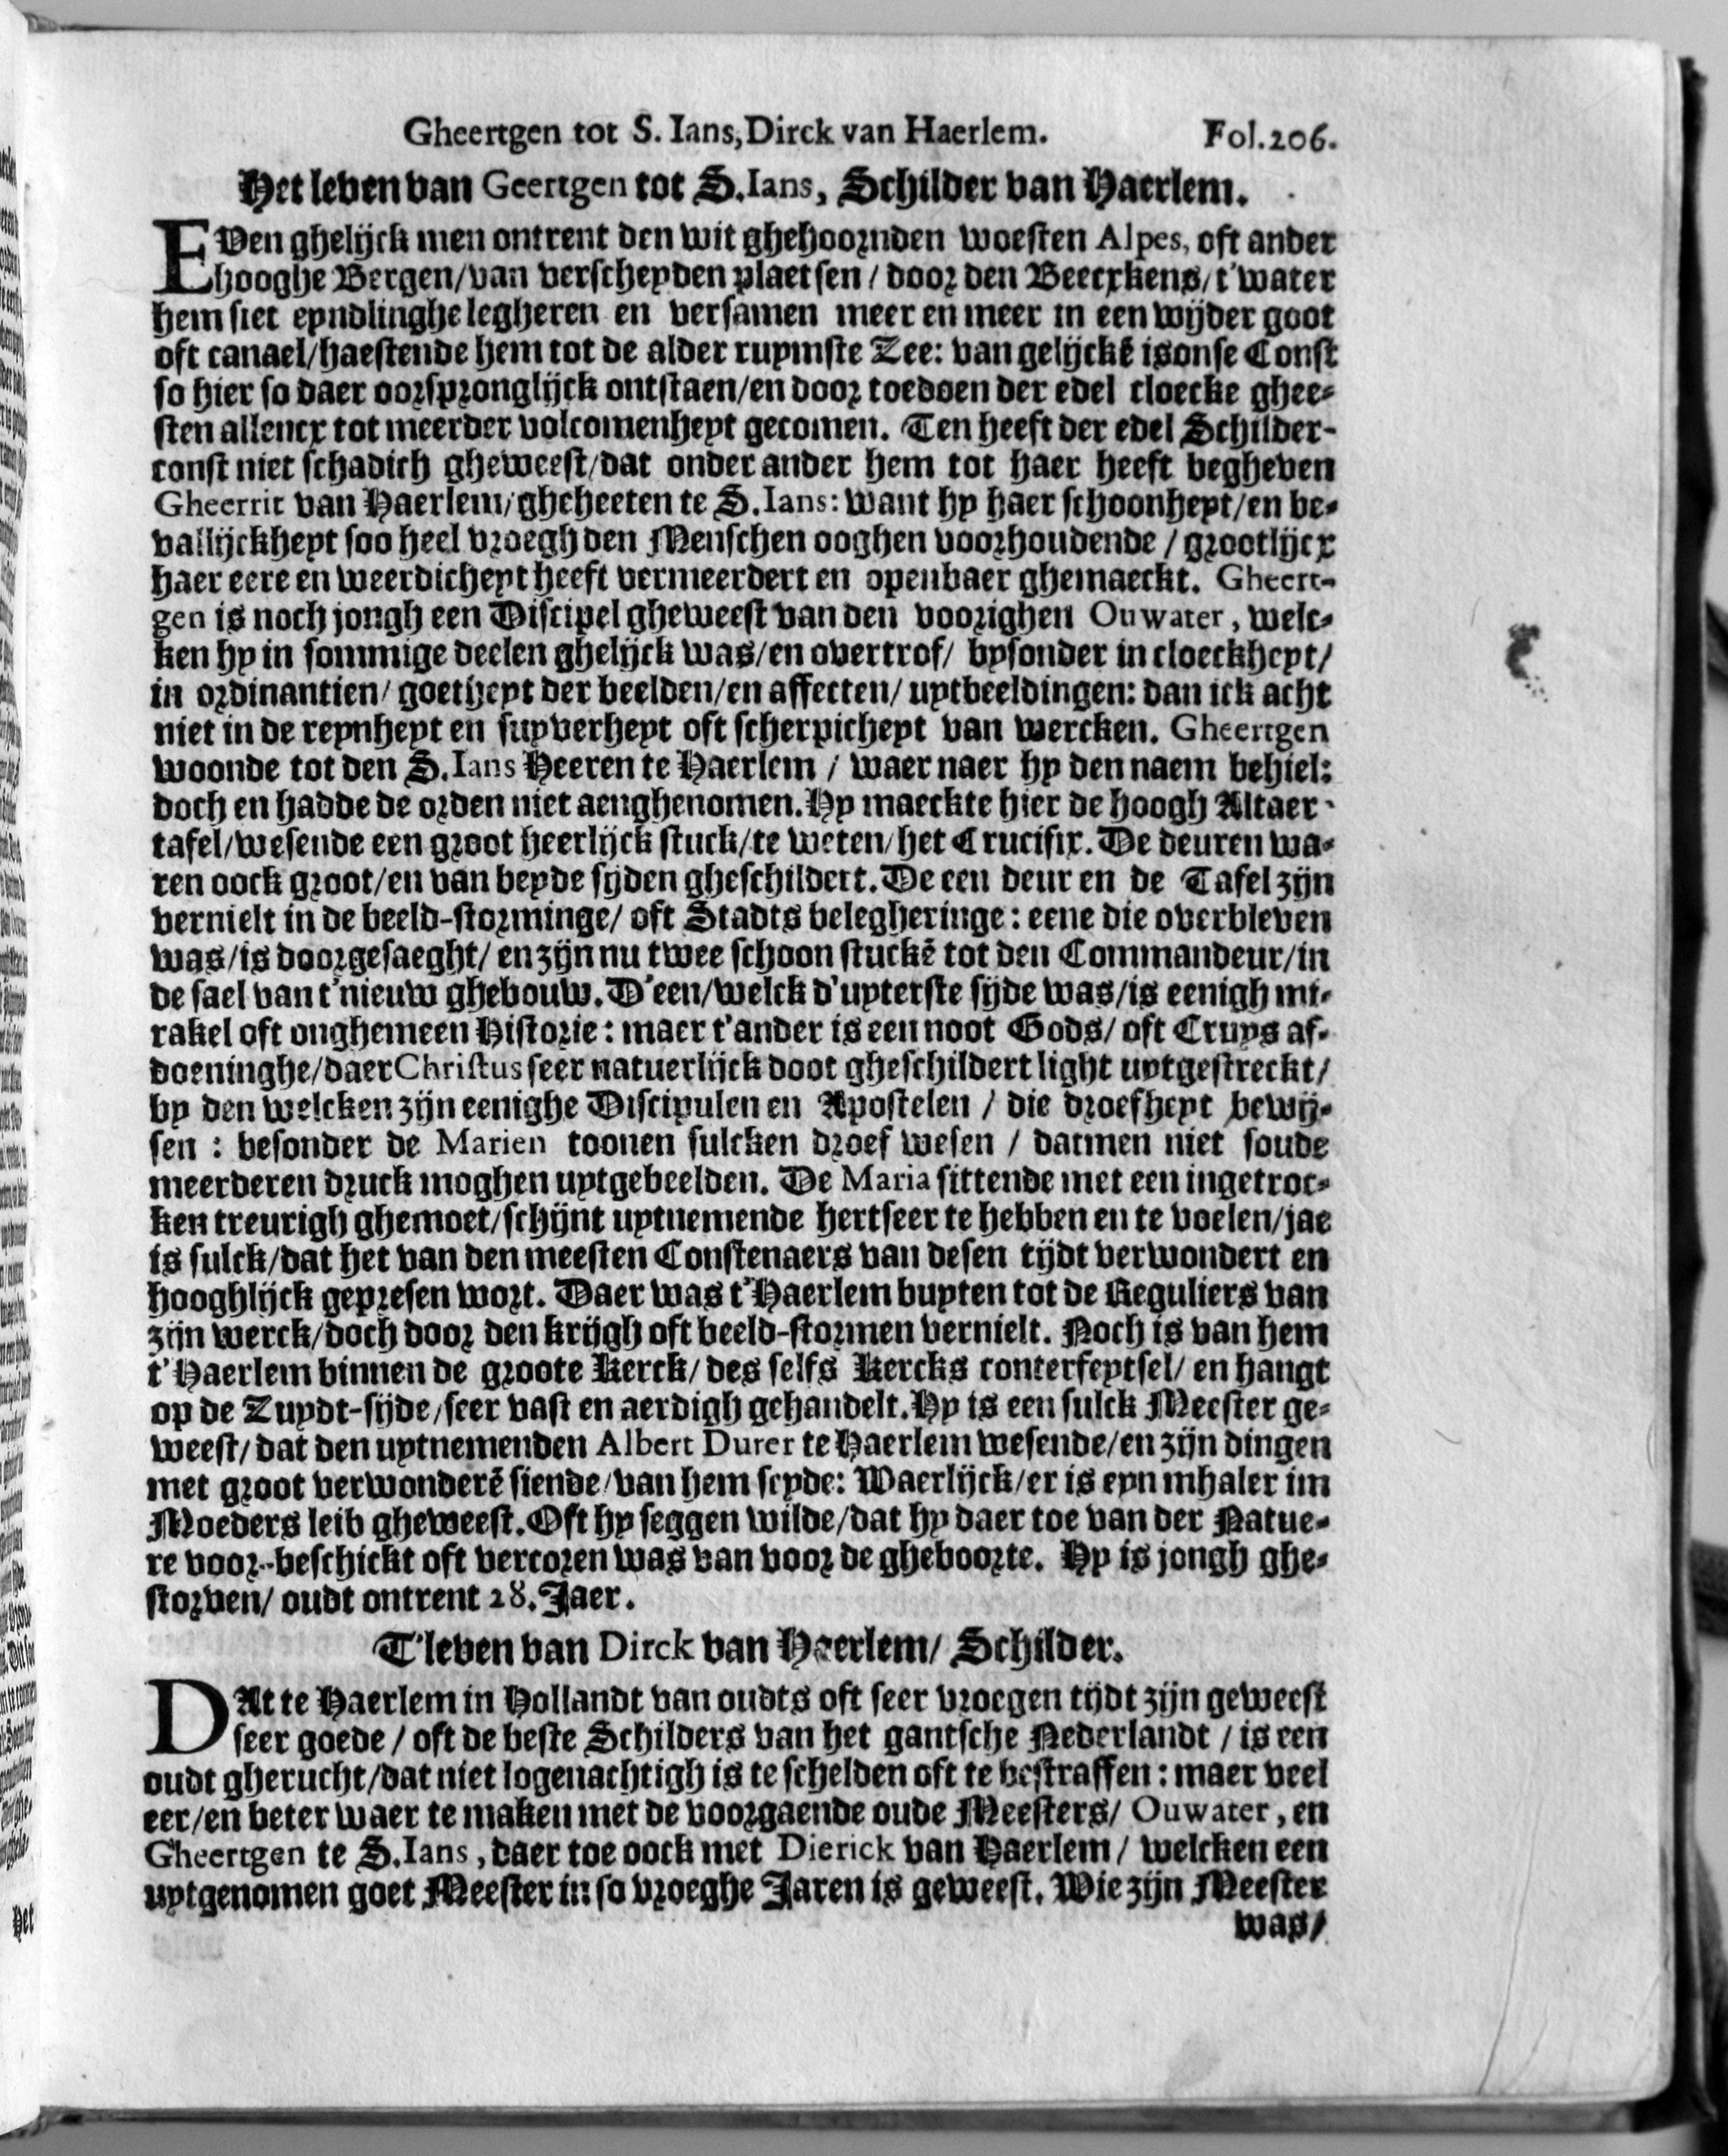 Gheertgen tot S. Ians, Dirck van Haerlem. Fol. 206.
Het leven van Geertgen tot S. Ians, Schilder van Haerlem.
EVen ghelijck men ontrent den wit ghehoornden woesten Alpes, oft ander
hooghe Bergen/van verscheyden plaetsen/door den Beecxkens/t'water
hem siet eyndlinghe legheren en versamen meer en meer in een wijder goot
oft canael/haestende hem tot de alder ruymste Zee: van gelijckē is onse Const
so hier so daer oorspronglijck ontstaen/en door toedoen der edel cloecke ghee-
sten allencx tot meerder volcomenheyt gecomen. Ten heeft der edel Schilder-
const niet schadich gheweest/dat onder ander hem tot haer heeft begheven
Gheerrit van Haerlem/gheheeten te S. Ians: want hy haer schoonheyt/en be-
vallijckheyt soo heel vroegh den Menschen ooghen voorhoudende/grootlijcx
haer eere en weerdicheyt heeft vermeerdert en openbaer ghemaeckt. Gheert-
gen is noch jongh een Discipel gheweest van den voorighen Ouwater, welc-
ken hy in sommige deelen ghelijck was/en overtrof/ bysonder in cloeckheyt/
in ordinantien/goetheyt der beelden/en affecten/uytbeeldingen: dan ick acht
niet in de reynheyt en suyverheyt oft scherpicheyt van wercken. Gheertgen
woonde tot den S. Ians Heeren te Haerlem/ waer naer hy den naem behiel:
doch en hadde de orden niet aenghenomen. Hy maeckte hier de hoogh Altaer-
tafel/wesende een groot heerlijck stuck/te weten/het Crucifix. De deuren wa-
ren oock groot/en van beyde sijden gheschildert. De een deur en de Tafel zijn
vernielt in de beeld-storminge/ oft Stadts belegheringe: eene die overbleven
was/is doorgesaeght/ en zijn nu twee schoon stuckē tot den Commandeur/in
de sael van t'nieuw ghebouw. D'een/welck d'uyterste sijde was/is eenigh mi-
rakel oft onghemeen Historie: maer t'ander is een noot Gods/ oft Cruys af-
doeninghe/daer Christus seer natuerlijck doot gheschildert light uytgestreckt/
by den welcken zijn eenighe Discipulen en Apostelen/ die droefheyt bewij-
sen: besonder de Marien toonen sulcken droef wesen/ datmen niet soude
meerderen druck moghen uytgebeelden. De Maria sittende met een ingetroc-
ken treurigh ghemoet/schijnt uytnemende hertseer te hebben en te voelen/jae
is sulck/dat het van den meesten Constenaers van desen tijdt verwondert en
hooghlijck gepresen wort. Daer was t'Haerlem buyten tot de Reguliers van
zijn werck/doch door den krijgh oft beeld-stormen vernielt. Noch is van hem
t'Haerlem binnen de groote Kerck/ des selfs Kercks conterfeytsel/ en hangt
op de Zuydt-sijde/seer vast en aerdigh gehandelt. Hy is een sulck Meester ge-
weest/dat den uytnemenden Albert Durer te Haerlem wesende/en zijn dingen
met groot verwonderē siende/van hem seyde: Waerlijck/er is eyn mhaler im
Moeders leib gheweest. Oft hy seggen wilde/dat hy daer toe van der Natue-
re voor-beschickt oft vercoren was van voor de gheboorte. Hy is jongh ghe-
storven/ oudt ontrent 28. Jaer.
T'leven van Dirck van Haerlem/ Schilder.
DAt te Haerlem in Hollandt van oudts oft seer vroegen tijdt zijn geweest
seer goede/ oft de beste Schilders van het gantsche Nederlandt/ is een
oudt gherucht/dat niet logenachtigh is te schelden oft te bestraffen: maer veel
eer/en beter waer te maken met de voorgaende oude Meesters/ Ouwater, en
Gheertgen te S. Ians, daer toe oock met Dierick van Haerlem/ welcken een
uytgenomen goet Meester in so vroeghe Jaren is geweest. Wie zijn Meester
was/
Het